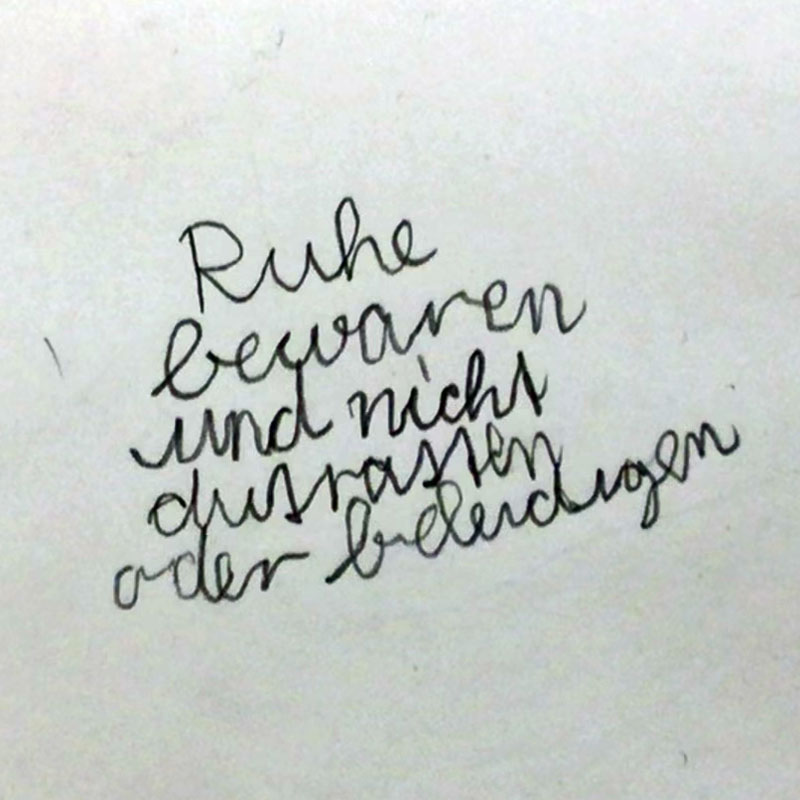 Ruhe
bewaren
und nicht
ausrasten
oder beleidigen